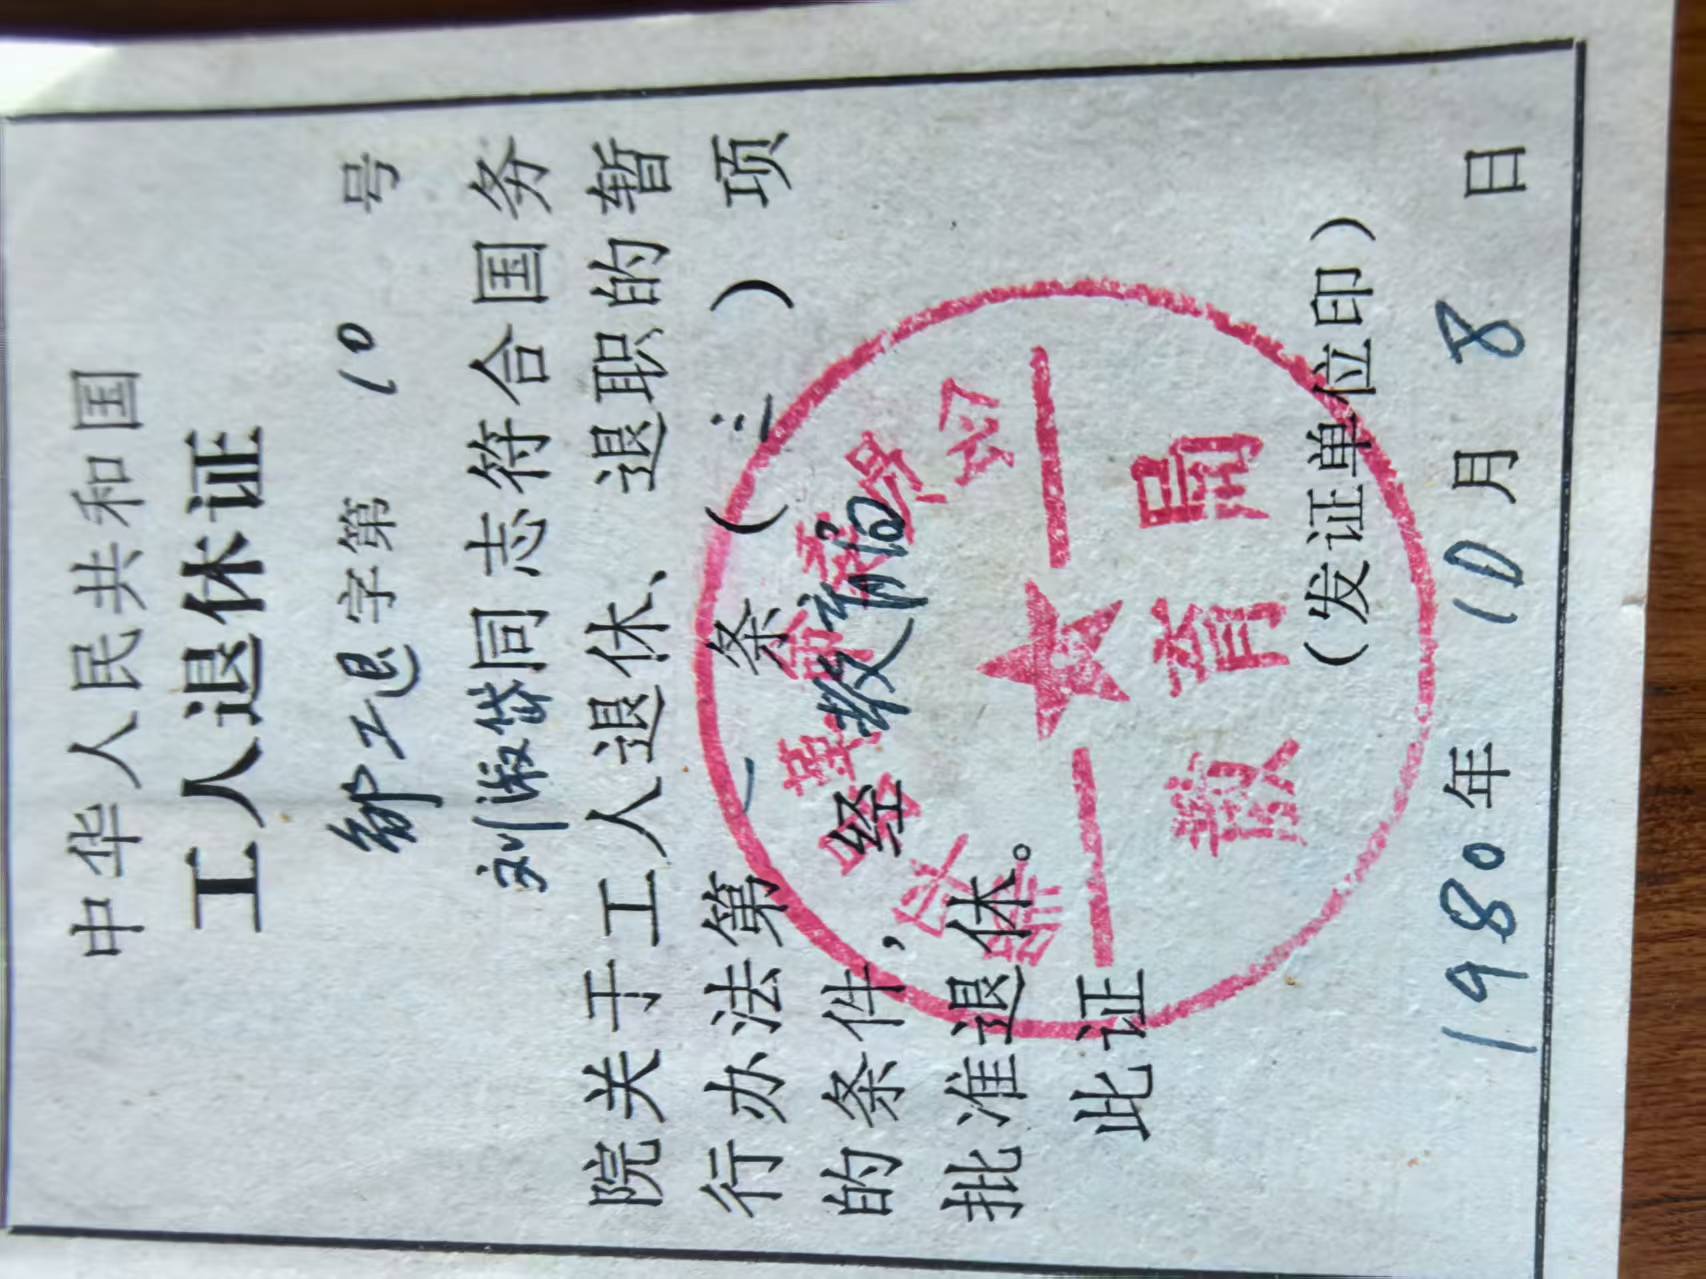 中华人民共和国
工人退休证
邹工退字第 10 号
刘淑岱同志符合国务
院关于工人退休、退职的暂
行办法第 一 条 (三) 项
的条件,经 教育局
批准退休。
此证
教育局
(发证单位印)
1980年 10月 8 日